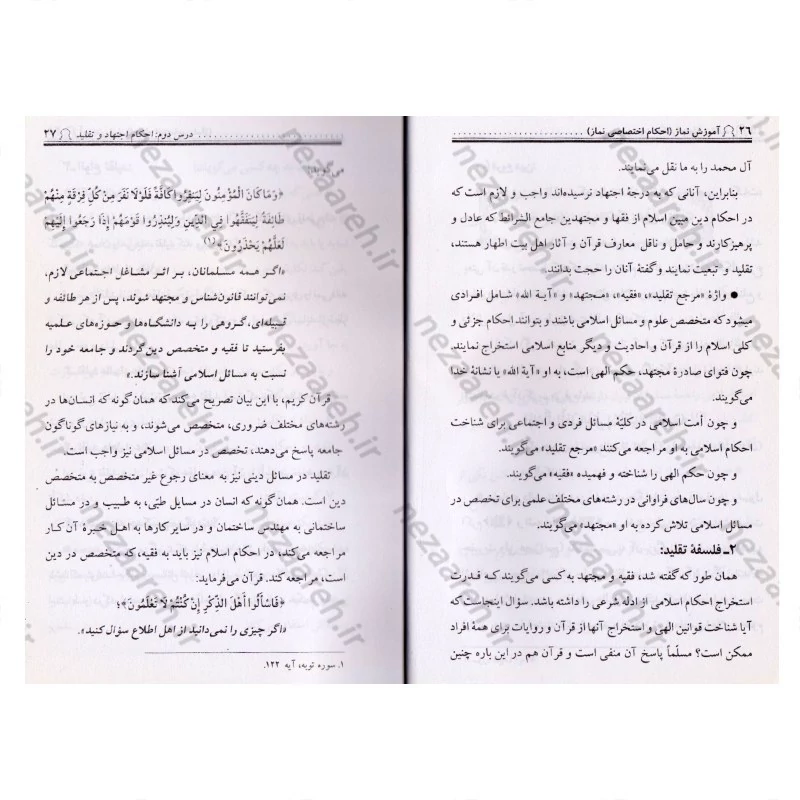 ۲۶ آموزش نماز (احکام اختصاصی نماز)
آل محمد را به ما نقل می‌نمایند.
بنابراین، آنانی که به درجهٔ اجتهاد نرسیده‌اند واجب و لازم است که
در احکام دین مبین اسلام از فقها و مجتهدین جامع الشرائط که عادل و
پرهیزکارند و حامل و ناقل معارف قرآن و آثار اهل بیت اطهار هستند،
تقلید و تبعیت نمایند و گفتهٔ آنان را حجت بدانند.
● واژهٔ «مرجع تقلید»، «فقیه»، «مجتهد» و «آیة الله» شامل افرادی
میشود که متخصص علوم و مسائل اسلامی باشند و بتوانند احکام جزئی و
کلی اسلام را از قرآن و احادیث و دیگر منابع اسلامی استخراج نمایند.
چون فتوای صادرهٔ مجتهد، حکم الهی است، به او «آیة الله» یا نشانهٔ خدا
می‌گویند.
و چون اُمت اسلامی در کلیّهٔ مسائل فردی و اجتماعی برای شناخت
احکام اسلامی به او مراجعه می‌کنند «مرجع تقلید» می‌گویند.
و چون حکم الهی را شناخته و فهمیده «فقیه» می‌گویند.
و چون سال‌های فراوانی در رشته‌های مختلف علمی برای تخصص در
مسائل اسلامی تلاش کرده به او «مجتهد» می‌گویند.
۲ـ فلسفهٔ تقلید:
همان طور که گفته شد، فقیه و مجتهد به کسی می‌گویند که قدرت
استخراج احکام اسلامی از ادله شرعی را داشته باشد. سؤال اینجاست که
آیا شناخت قوانین الهی و استخراج آنها از قرآن و روایات برای همهٔ افراد
ممکن است؟ مسلّماً پاسخ آن منفی است و قرآن هم در این باره چنین
درس دوم: احکام اجتهاد و تقلید ۲۷
می‌گوید:
﴿وَمَا كَانَ الْمُؤْمِنُونَ لِيَنفِرُوا كَافَّةً فَلَوْلَا نَفَرَ مِنْ كُلِّ فِرْقَةٍ مِنْهُمْ
طَائِفَةٌ لِيَتَفَقَّهُوا فِي الدِّينِ وَلِيُنْذِرُوا قَوْمَهُمْ إِذَا رَجَعُوا إِلَيْهِمْ
لَعَلَّهُمْ يَحْذَرُونَ﴾(۱)
«اگر همه مسلمانان، بر اثر مشاغل اجتماعی لازم،
نمی‌توانند قانون‌شناس و مجتهد شوند، پس از هر طائفه و
قبیله‌ای، گروهی را به دانشگاه‌ها و حوزه‌های علمیه
بفرستید تا فقیه و متخصص دین گردند و جامعه خود را
نسبت به مسائل اسلامی آشنا سازند.»
قرآن کریم، با این بیان تصریح می‌کند که همان گونه که انسان‌ها در
رشته‌های مختلف ضروری، متخصص می‌شوند، و به نیازهای گوناگون
جامعه پاسخ می‌دهند، تخصص در مسائل اسلامی نیز واجب است.
تقلید در مسائل دینی نیز به معنای رجوع غیر متخصص به متخصص
دین است. همان گونه که انسان در مسایل طبّی، به طبیب و در مسائل
ساختمانی به مهندس ساختمان و در سایر کارها به اهل خبرهٔ آن کار
مراجعه می‌کند، در احکام اسلام نیز باید به فقیه، که متخصص در دین
است، مراجعه کند. قرآن می‌فرماید:
﴿فَاسْأَلُوا أَهْلَ الذِّكْرِ إِنْ كُنْتُمْ لَا تَعْلَمُونَ﴾؛
«اگر چیزی را نمی‌دانید از اهل اطلاع سؤال کنید».
۱. سوره توبه، آیه ۱۲۲.
nezaareh.ir